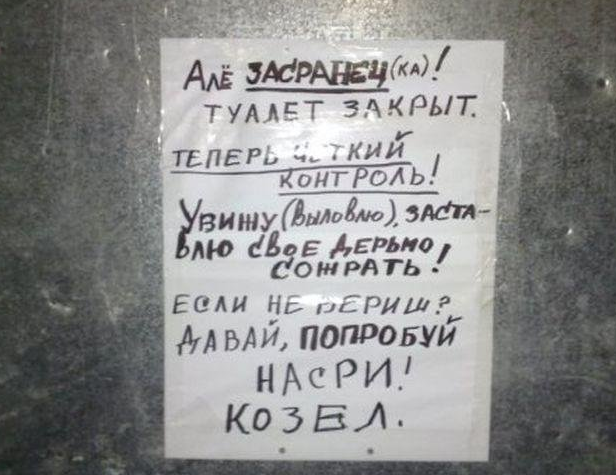 Алё ЗАСРАНЕЦ(КА)!
ТУАЛЕТ ЗАКРЫТ.
ТЕПЕРЬ ЧЕТКИЙ
КОНТРОЛЬ!
УВИЖУ (ВЫЛОВЛЮ), ЗАСТА-
ВЛЮ СВОЕ ДЕРЬМО
СОЖРАТЬ!
ЕСЛИ НЕ ВЕРИШ?
ДАВАЙ, ПОПРОБУЙ
НАСРИ!
КОЗЕЛ.